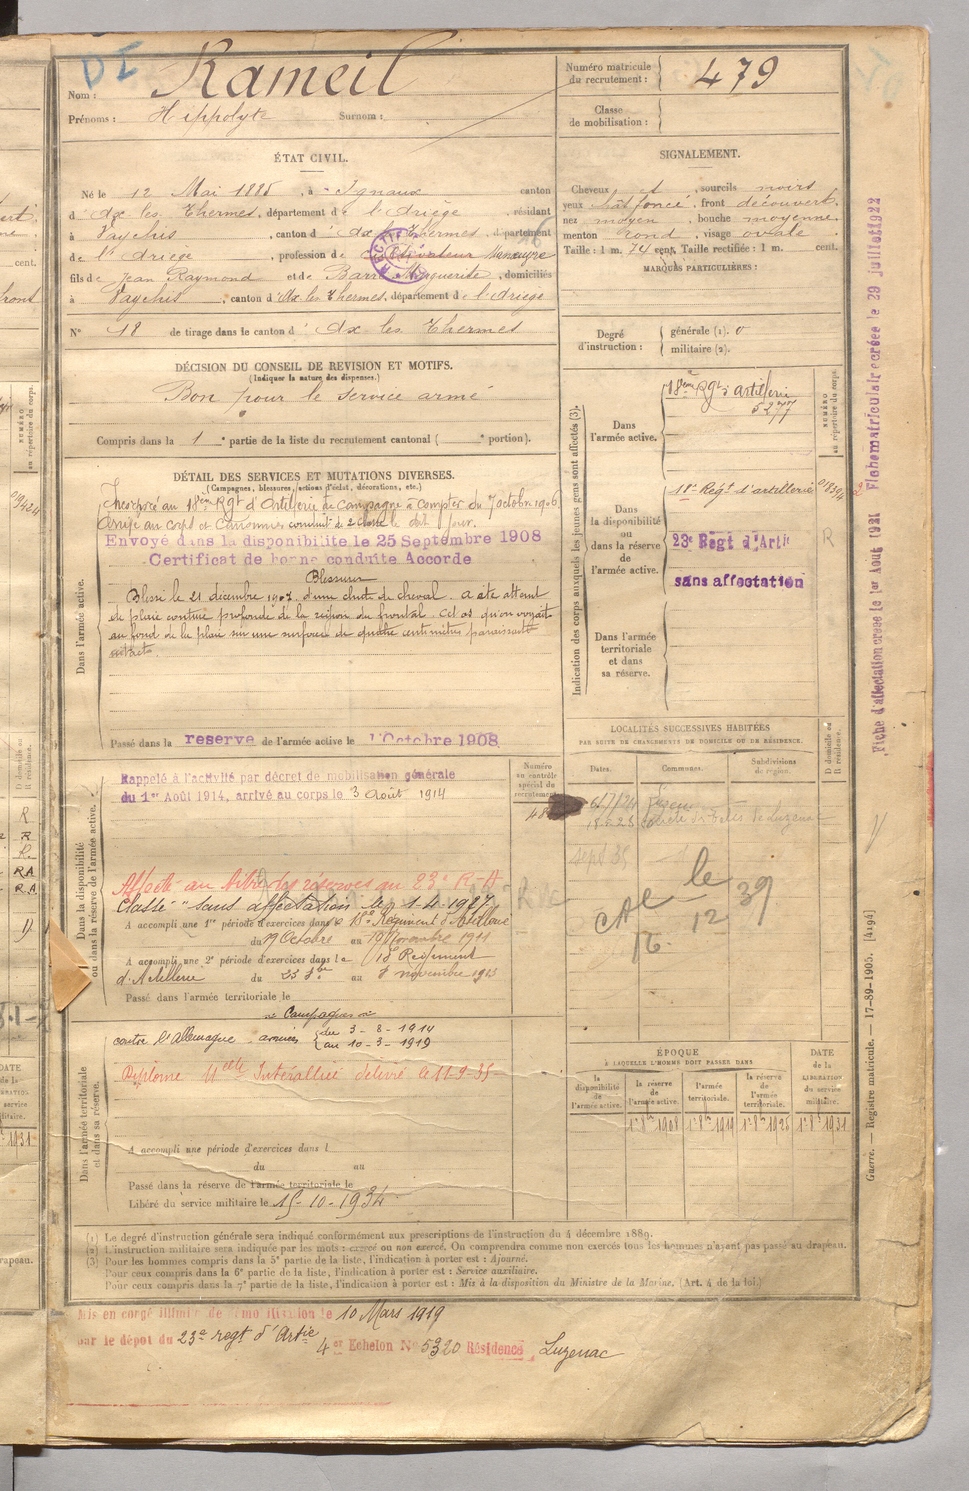 DI
Nom : Rameil
Prénoms : Hippolyte Surnom :
Numéro matricule du recrutement : 479
Classe de mobilisation :
ÉTAT CIVIL.
Né le 12 Mai 1885, à Ignaux canton
d'Ax les Thermes, département de l'Ariège, résidant
à Vaychis, canton d'Ax les Thermes, département
de l'Ariège, profession de Cultivateur Manœuvre
fils de Jean Raymond et de Marguerite, domiciliés
à Vaychis, canton d'Ax les Thermes, département de l'Ariège
N° 18 de tirage dans le canton d'Ax les Thermes
SIGNALEMENT.
Cheveux et, sourcils noirs
yeux chât foncé, front découvert,
nez moyen, bouche moyenne
menton rond, visage ovale
Taille : 1 m. 74 cent. Taille rectifiée : 1 m. cent.
MARQUES PARTICULIÈRES :
Degré d'instruction : générale (1). 0
militaire (2).
DÉCISION DU CONSEIL DE REVISION ET MOTIFS.
(Indiquer la nature des dispenses.)
Bon pour le service armé
Compris dans la 1 e partie de la liste du recrutement cantonal ( e portion).
DÉTAIL DES SERVICES ET MUTATIONS DIVERSES.
(Campagnes, blessures, actions d'éclat, décorations, etc.)
Dans l'armée active.
Incorporé au 18eme Rgt d'Artillerie de Campagne à compter du 7 octobre 1906
Arrivé au Corps et Canonnier conduct de 2e classe le dit jour.
Envoyé dans la disponibilite le 25 Septembre 1908
Certificat de bonne conduite Accorde
Blessures
Blessé le 21 décembre 1907 d'une chute de cheval. A été atteint
de plaie contuse profonde de la région du frontal. Cet os qu'on voyait
au fond de la plaie sur une surface de quatre centimètres paraissait
intact.
Passé dans la reserve de l'armée active le 1 Octobre 1908
Indication des corps auxquels les jeunes gens sont affectés (3).
NUMÉRO au répertoire du corps.
Dans l'armée active.
18eme Rgt d'artillerie
5277
Dans la disponibilité ou dans la réserve de l'armée active.
18e Régt d'artillerie
23e Regt d'Artie
sans affectation
R
Dans l'armée territoriale et dans sa réserve.
Dans la disponibilité ou dans la réserve de l'armée active.
Rappelé à l'activité par décret de mobilisation générale
du 1er Août 1914, arrivé au corps le 3 Août 1914
Numéro au contrôle spécial du recrutement
Affecté au titre des réserves au 23e R-A
Classé "sans affectation le 1-4-1927.
A accompli une 1re période d'exercices dans le 18e Régiment d'Artillerie
du 19 Octobre au 10 Novembre 1911
A accompli une 2e période d'exercices dans le 18 Régiment
d'Artillerie du 23 8bre au 8 novembre 1913
Passé dans l'armée territoriale le
Dans l'armée territoriale et dans sa réserve.
Campagnes
contre l'Allemagne du 3-8-1914
au 10-3-1919
Diplôme Interallié délivré le 11-9-35
A accompli une période d'exercices dans l
du au
Passé dans la réserve de l'armée territoriale le
Libéré du service militaire le 15-10-1934
LOCALITÉS SUCCESSIVES HABITÉES
PAR SUITE DE CHANGEMENTS DE DOMICILE OU DE RÉSIDENCE.
Dates. Communes. Subdivisions de région. D domicile ou R résidence.
de Luzenac
39
12
ÉPOQUE
À LAQUELLE L'HOMME DOIT PASSER DANS
la disponibilité de l'armée active. la réserve de l'armée active. l'armée territoriale. la réserve de l'armée territoriale. DATE de la LIBÉRATION du service militaire.
1er 8bre 1908 1er 8bre 1919 1er 8bre 1925 1er 8bre 1931
(1) Le degré d'instruction générale sera indiqué conformément aux prescriptions de l'instruction du 4 décembre 1889.
(2) L'instruction militaire sera indiquée par les mots : exercé ou non exercé. On comprendra comme non exercés tous les hommes n'ayant pas passé au drapeau.
(3) Pour les hommes compris dans la 5e partie de la liste, l'indication à porter est : Ajourné.
Pour ceux compris dans la 6e partie de la liste, l'indication à porter est : Service auxiliaire.
Pour ceux compris dans la 7e partie de la liste, l'indication à porter est : Mis à la disposition du Ministre de la Marine. (Art. 4 de la loi.)
Mis en congé illimité de démobilisation le 10 Mars 1919
par le dépôt du 23e regt d'Artie 4e Echelon No 5320 Résidence Luzenac
Fiche d'affectation creee le 1er Aout 1921 Fiche matriculaire creée le 29 juillet 1922
Guerre. — Registre matricule. — 17-89-1905. [4194]